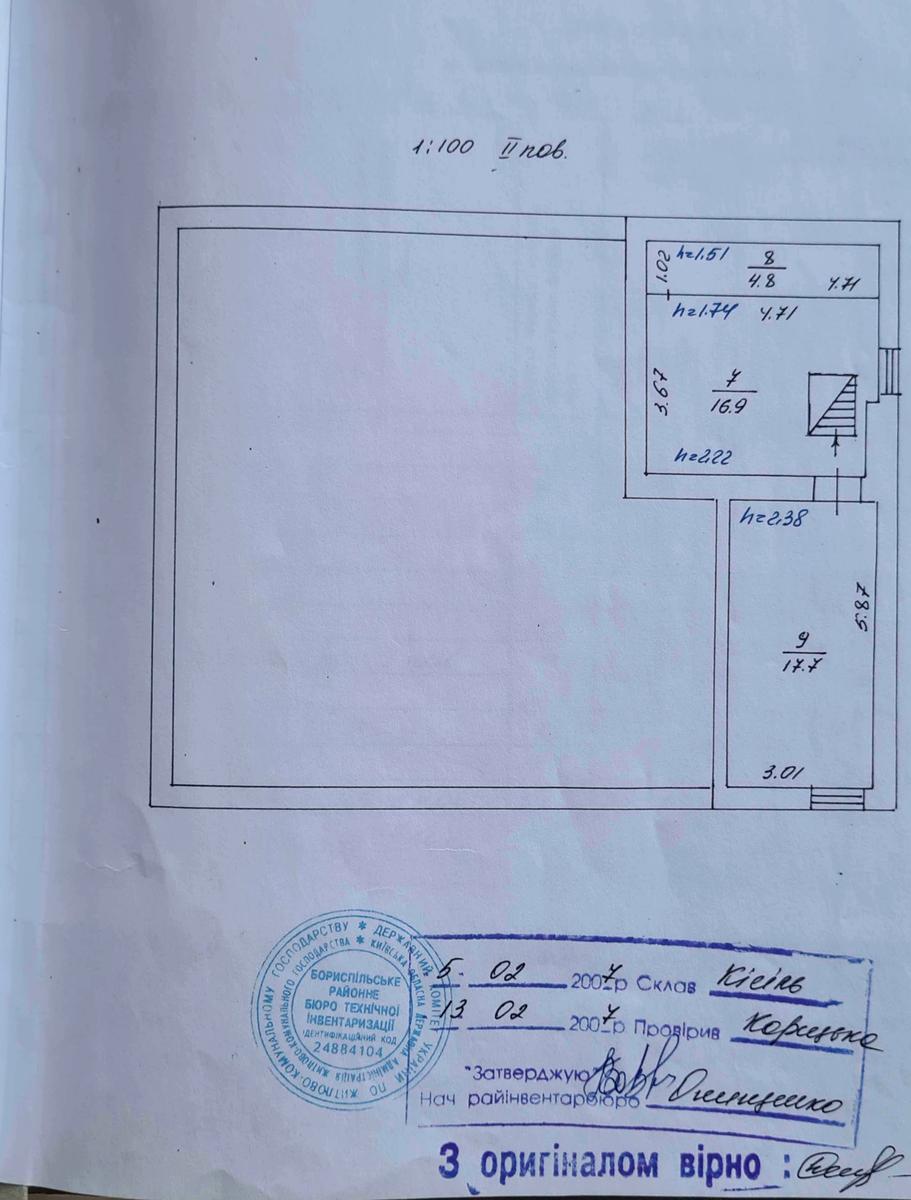 1:100 II пов.
h=1.51
8
4.8
1.02
4.71
h=1.74
4.71
3.67
7
16.9
h=2.22
h=2.38
5.87
9
17.7
3.01
ДЕРЖАВНИЙ КОМІТЕТ УКРАЇНИ ПО ЖИТЛОВО-КОМУНАЛЬНОМУ ГОСПОДАРСТВУ *
КИЇВСЬКА ОБЛАСНА ДЕРЖАВНА АДМІНІСТРАЦІЯ ЖИТЛОВО-КОМУНАЛЬНОГО ГОСПОДАРСТВА *
БОРИСПІЛЬСЬКЕ
РАЙОННЕ
БЮРО ТЕХНІЧНОЇ
ІНВЕНТАРИЗАЦІЇ
ІДЕНТИФІКАЦІЙНИЙ КОД
24884104
5. 02 2007р Склав Кісіль
13 02 2007р Провірив Корицька
"Затверджую
Нач райінвентарбюро
З оригіналом вірно :